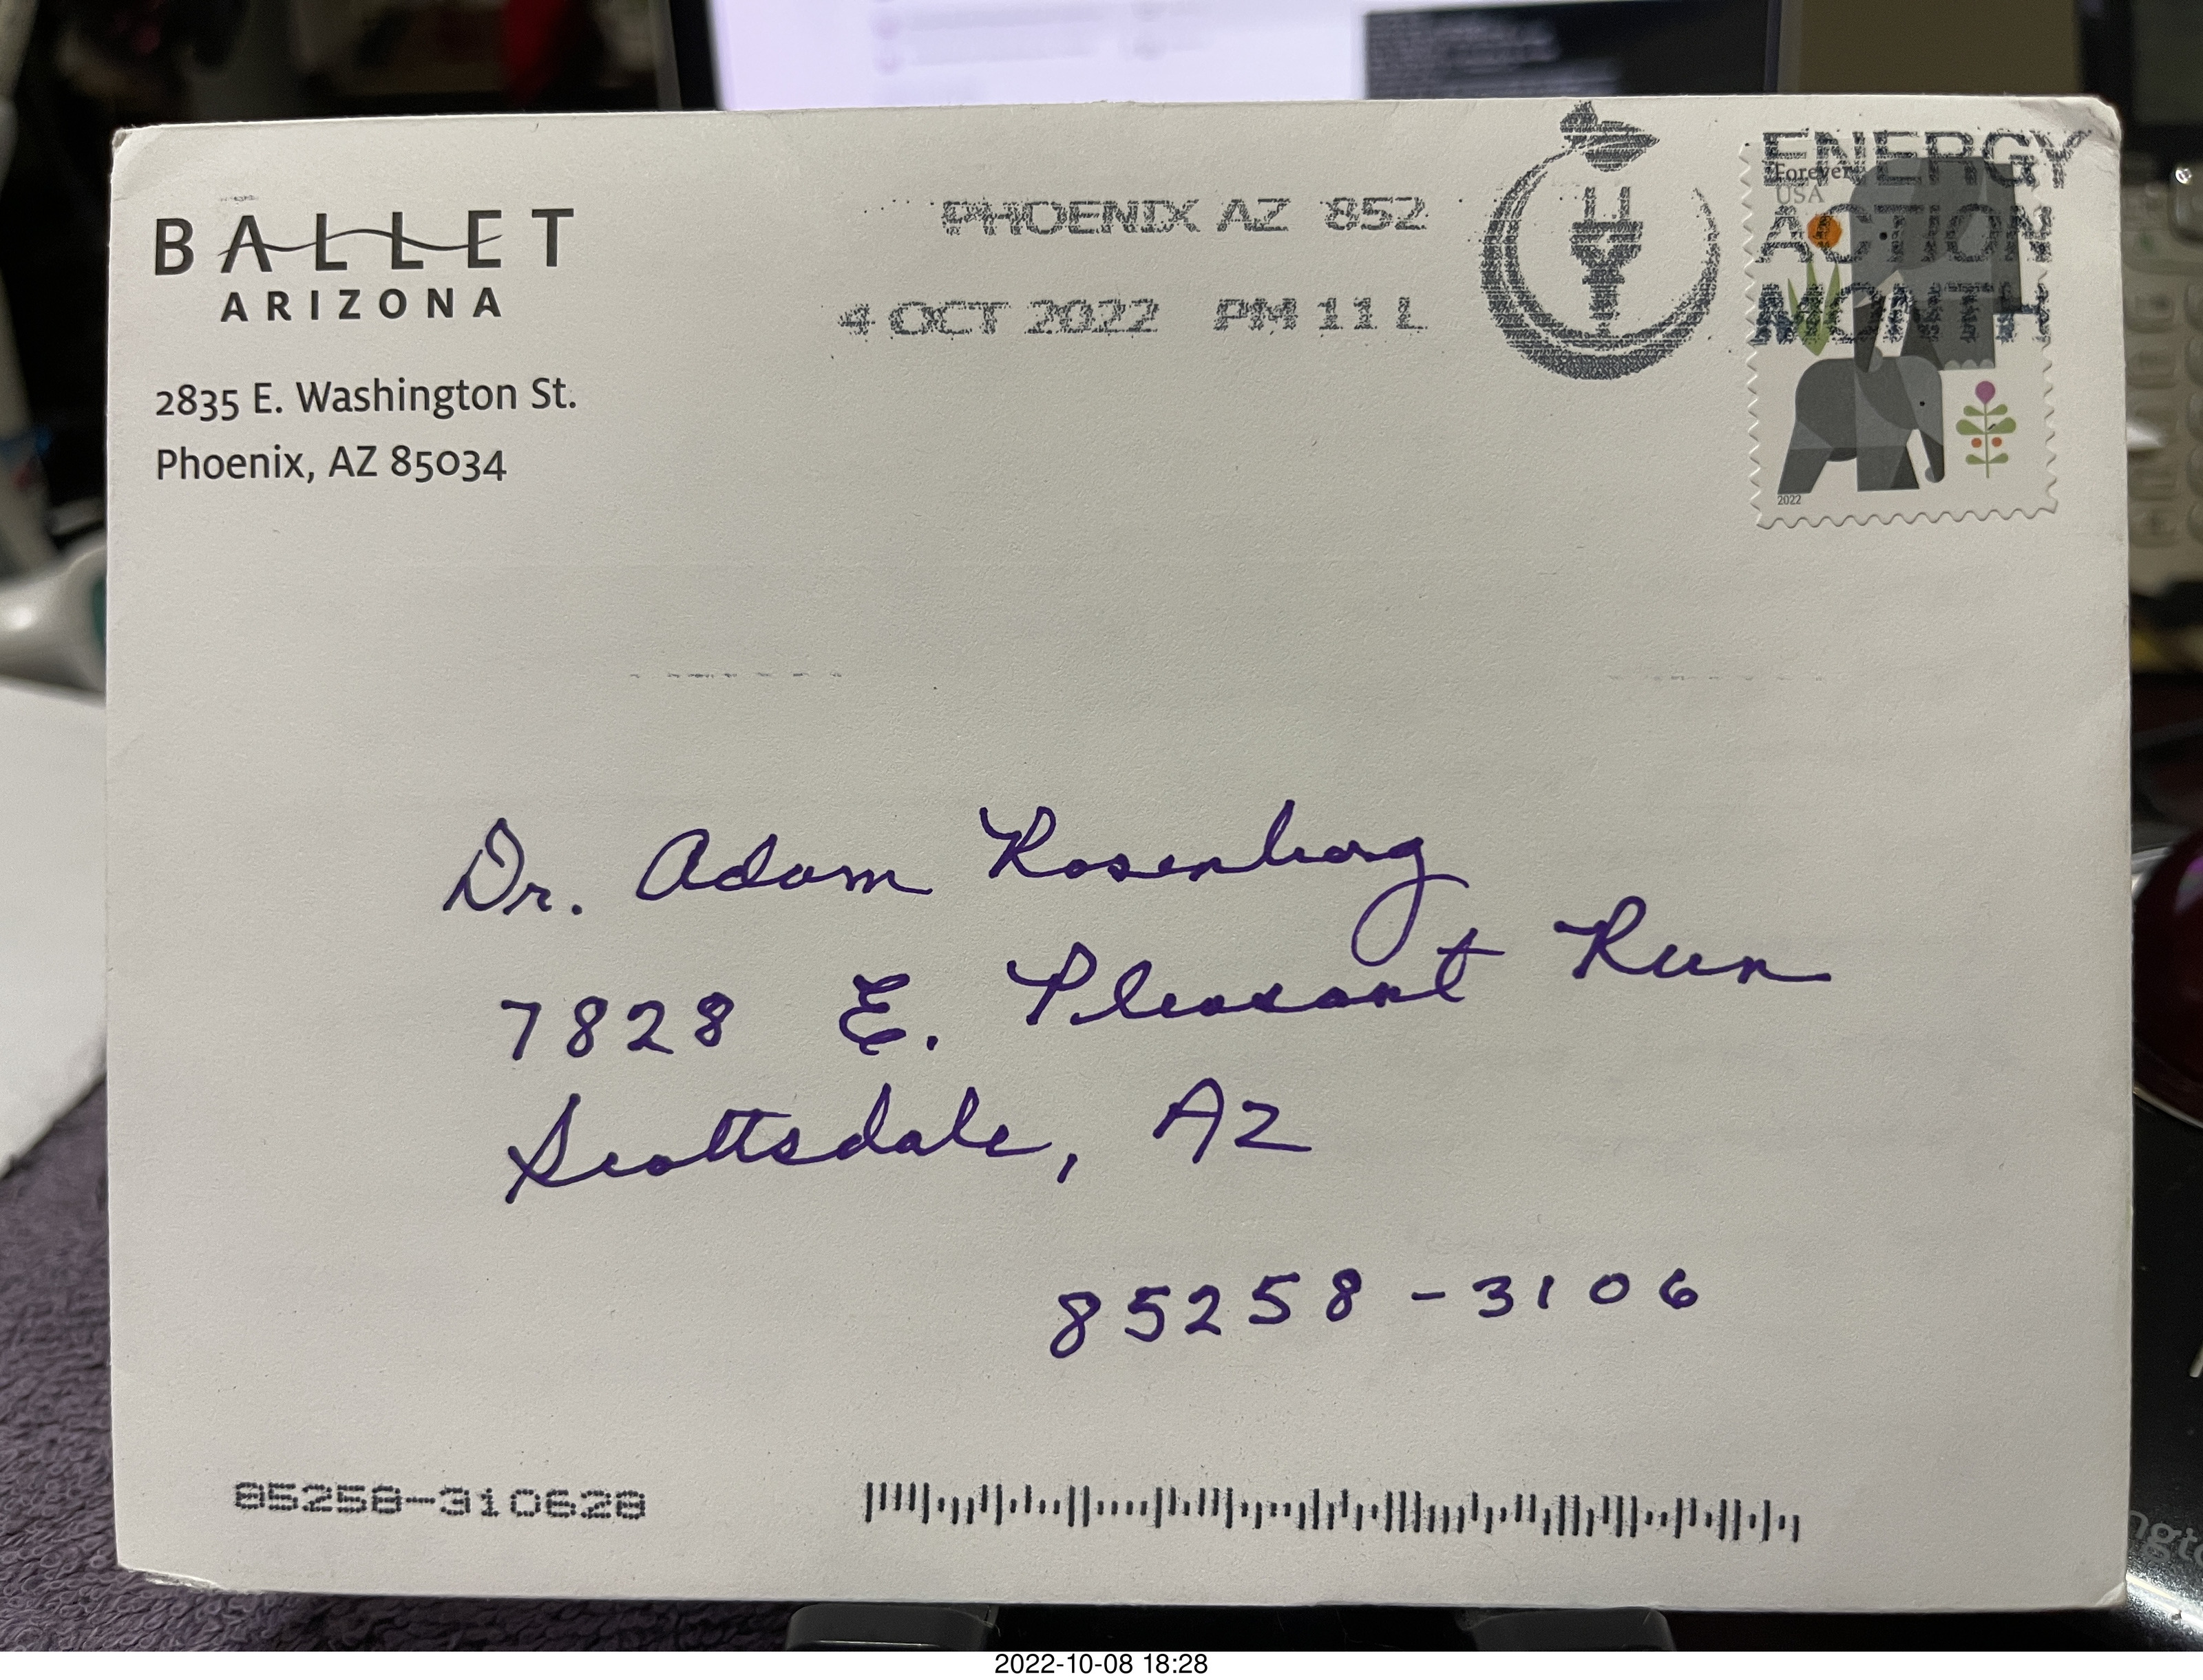 BALLET
ARIZONA
2835 E. Washington St.
Phoenix, AZ 85034
PHOENIX AZ 852
4 OCT 2022 PM 11 L
ENERGY
ACTION
MONTH
Forever
USA
2022
Dr. Adam Rosenberg
7828 E. Pleasant Run
Scottsdale, AZ
85258-3106
85258-310628
2022-10-08 18:28